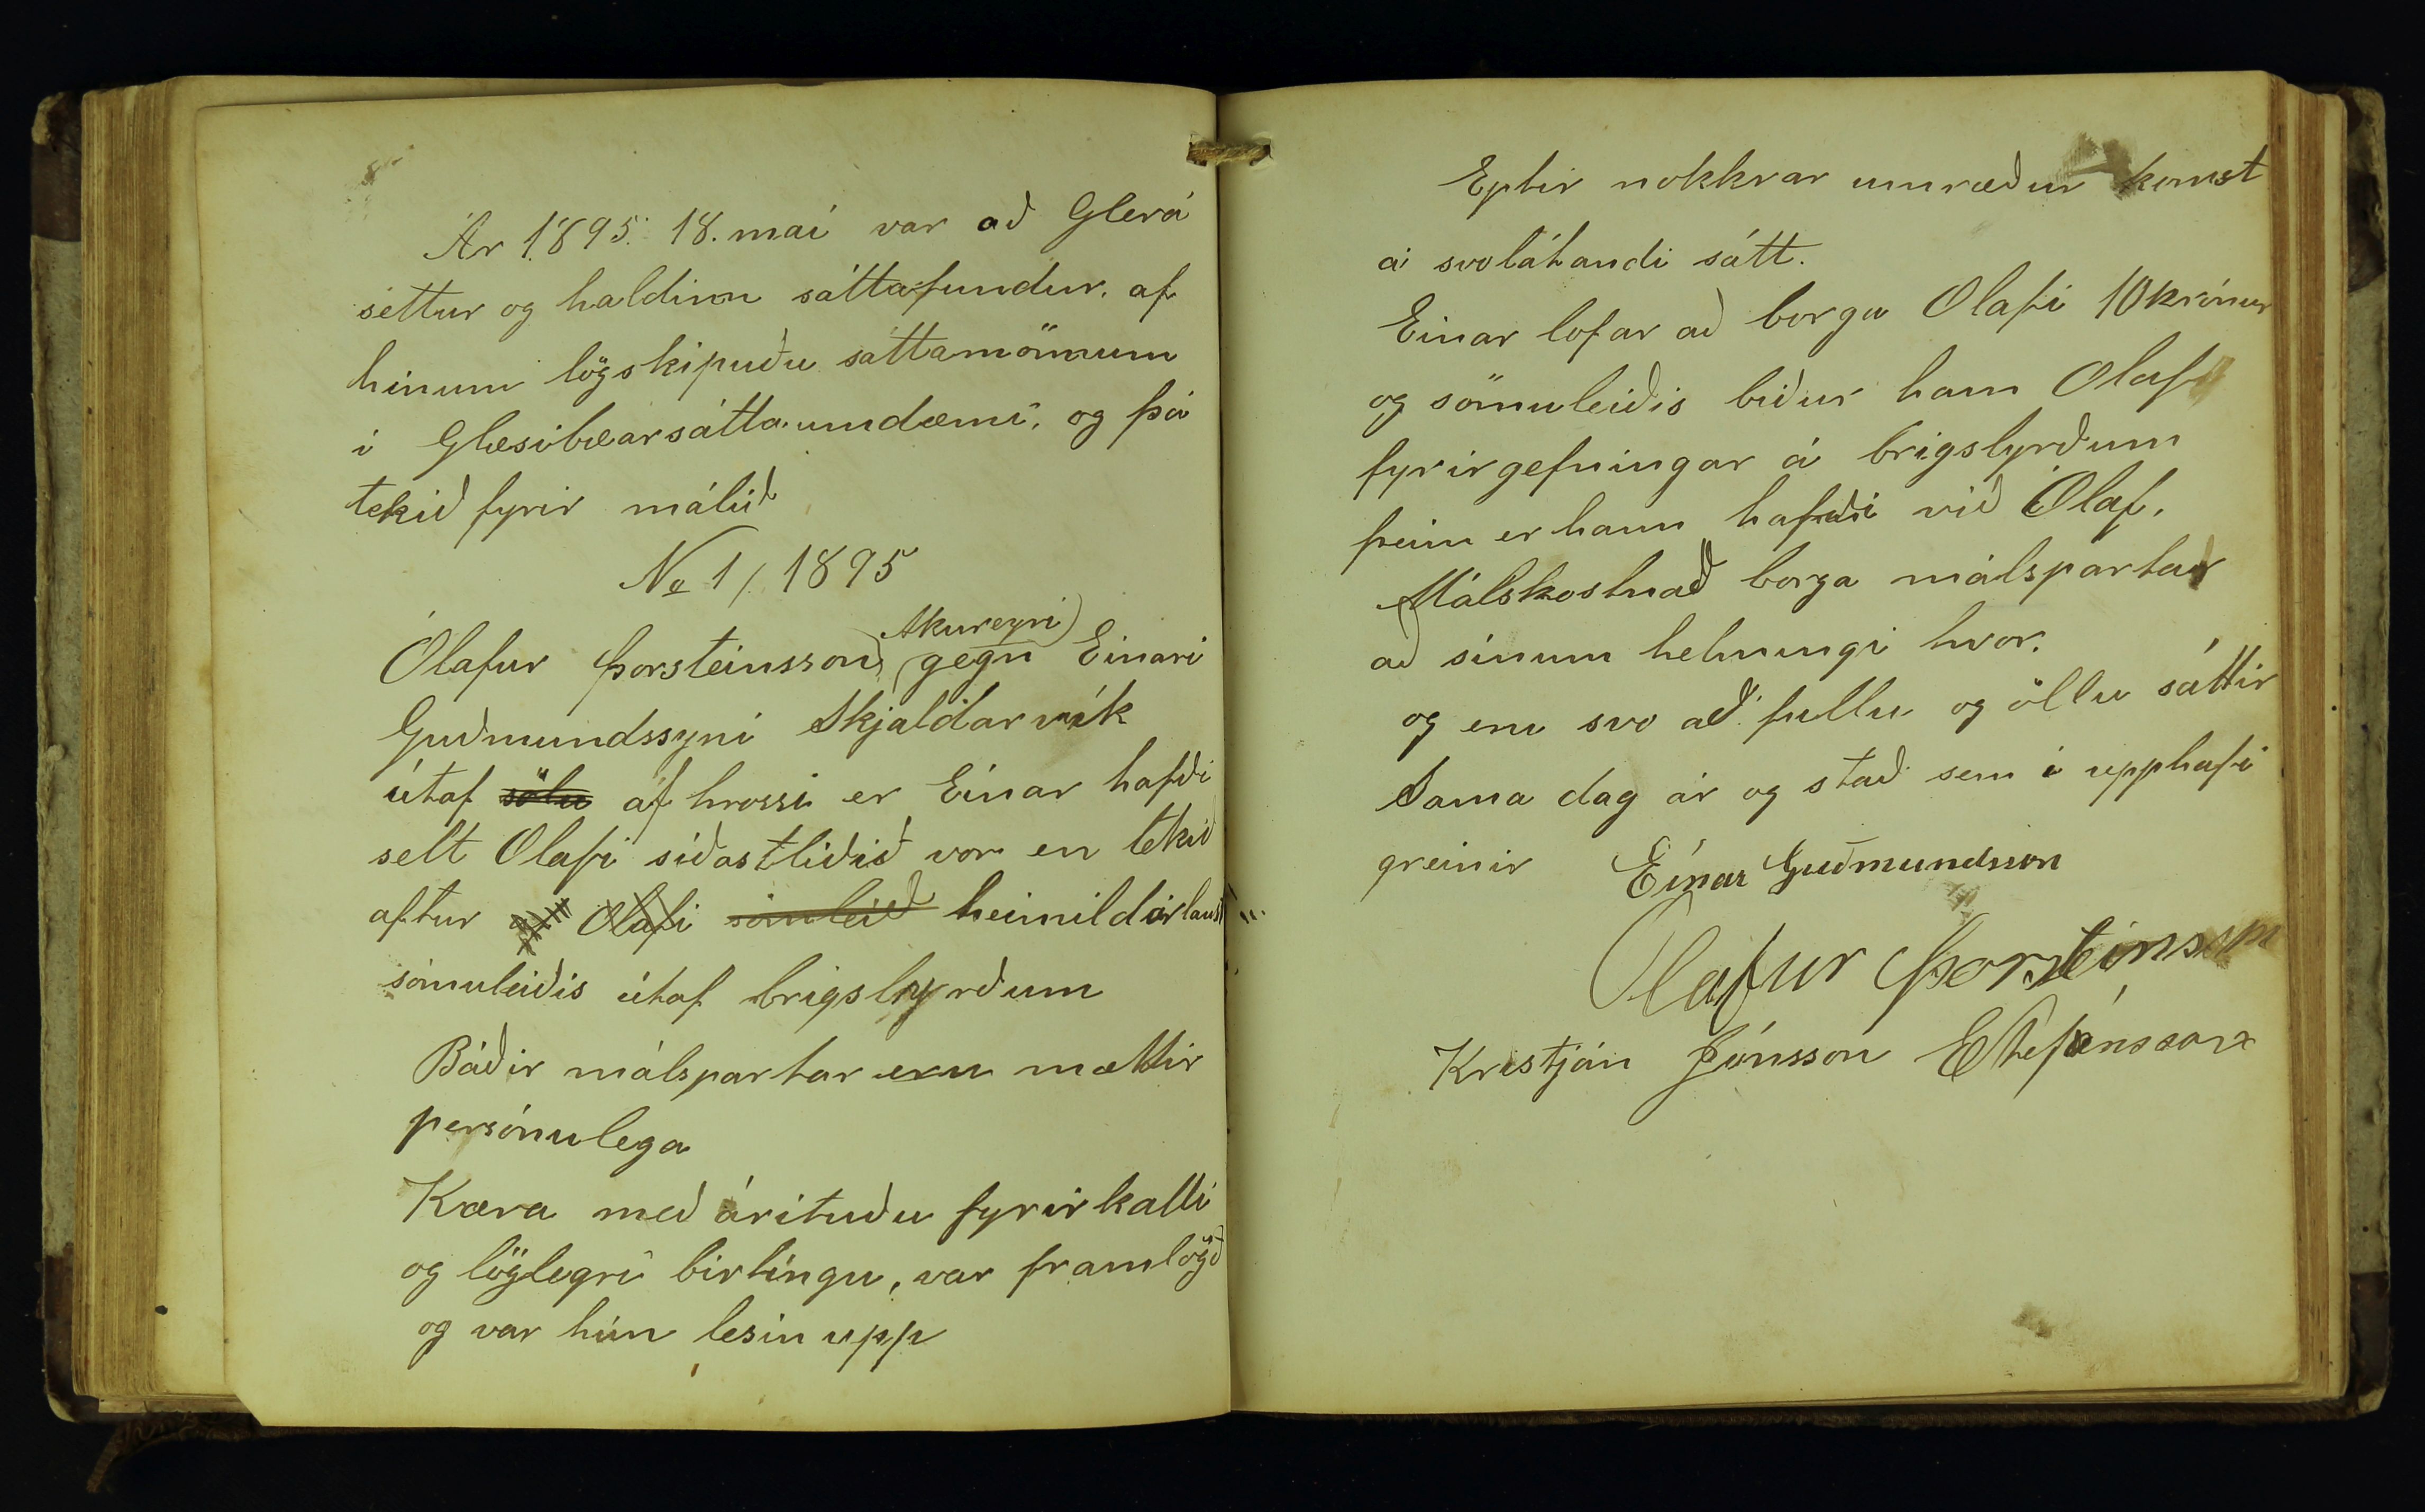 Ár 1895. 18. maí var að Glerá
settur og haldinn sáttafundur, af
hinum lögskipuðu sáttamönnum
í Glæsibæarsáttaumdæmi, og þá
tekið fyrir málið
No 1/ 1895
Ólafur Þorsteinsson, (Akureyri) gegn Einari
Guðmundssyni Skjaldarvík
útaf sölu af hrossi er Einar hafði
selt Olafi síðastliðið vor en tekið
aftur af Olafi sömleið heimildarlaust
sömuleiðis útaf brigslyrðum
Báðir málspartar eru mættir
persónulega
Kæra með árituðu fyrirkalli
og löglegri birtingu, var framlögð
og var hún lesin upp
Eptir nokkrar umræður komst
á svolátandi sátt.
Einar lofar að borga Olafi 10 krónur
og sömuleiðis biður hann Olaf
fyrirgefningar á brigslyrðum
þeim er hann hafði við Ólaf.
Málskostnað borga málspartar
að sínum helmingi hvor.
og eru svo að fullu og öllu sáttir
Sama dag ár og stað sem í upphafi
greinir Einar Guðmundsson
Olafur Þorsteinsson
Kristján Jónsson EStefánsson